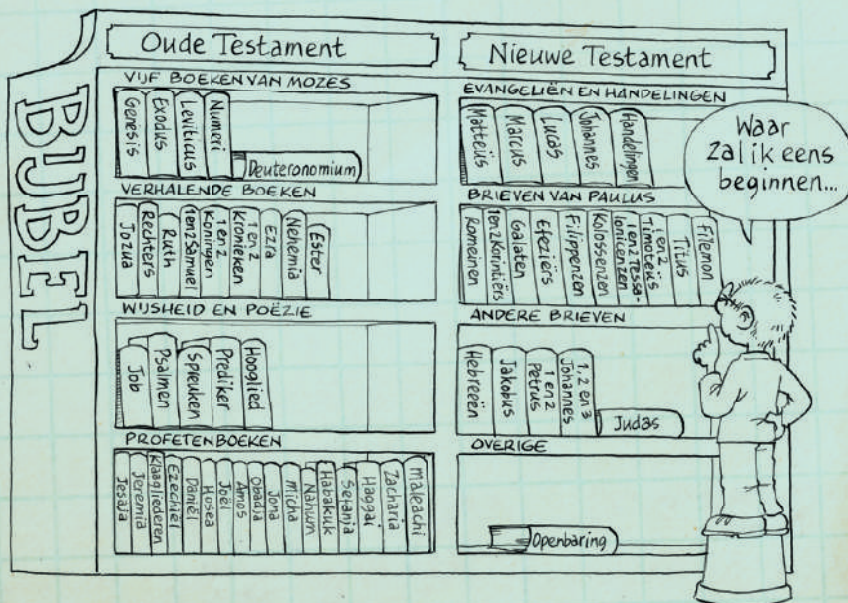 BIJBEL
Oude Testament
VIJF BOEKEN VAN MOZES
Genesis
Exodus
Leviticus
Numeri
Deuteronomium
VERHALENDE BOEKEN
Jozua
Rechters
Ruth
1 en 2 Samuel
1 en 2
Koningen
1 en 2
Kronieken
Ezra
Nehemia
Ester
WIJSHEID EN POËZIE
Job
Psalmen
Spreuken
Prediker
Hooglied
PROFETENBOEKEN
Jesaja
Jeremia
Klaagliederen
Ezechiël
Daniël
Hosea
Joël
Amos
Obadja
Jona
Micha
Nahum
Habakuk
Sefanja
Haggai
Zacharia
Maleachi
Nieuwe Testament
EVANGELIËN EN HANDELINGEN
Matteüs
Marcus
Lucas
Johannes
Handelingen
BRIEVEN VAN PAULUS
Romeinen
1 en 2 Korintiërs
Galaten
Efeziërs
Filippenzen
Kolossenzen
1 en 2 Tessa-
lonicenzen
1 en 2
Timoteüs
Titus
Filemon
ANDERE BRIEVEN
Hebreeën
Jakobus
1 en 2
Petrus
1, 2 en 3
Johannes
Judas
OVERIGE
Openbaring
Waar
zal ik eens
beginnen...